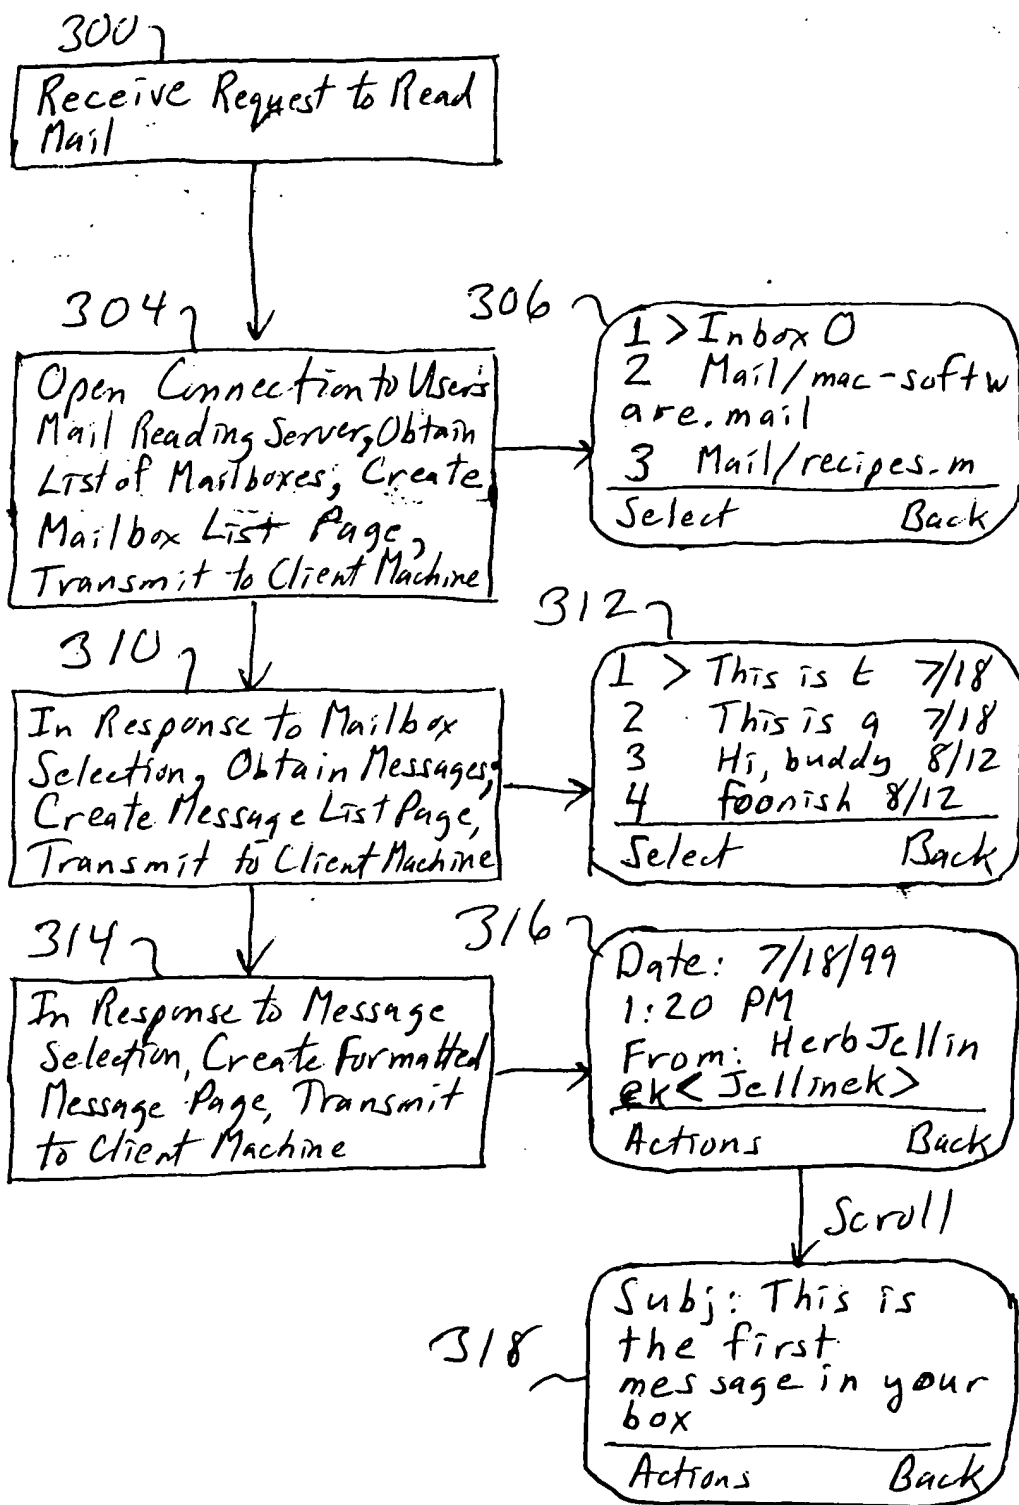 300
Receive Request to Read
Mail
304
Open Connection to User's
Mail Reading Server, Obtain
List of Mailboxes, Create
Mailbox List Page,
Transmit to Client Machine
306
1 > Inbox 0
2 Mail/mac-softw
are.mail
3 Mail/recipes.m
Select Back
310
In Response to Mailbox
Selection, Obtain Messages,
Create Message List Page,
Transmit to Client Machine
312
1 > This is t 7/18
2 This is a 7/18
3 Hi, buddy 8/12
4 foonish 8/12
Select Back
314
In Response to Message
Selection, Create Formatted
Message Page, Transmit
to Client Machine
316
Date: 7/18/99
1:20 PM
From: Herb Jellin
ek < Jellinek >
Actions Back
Scroll
318
Subj: This is
the first
message in your
box
Actions Back